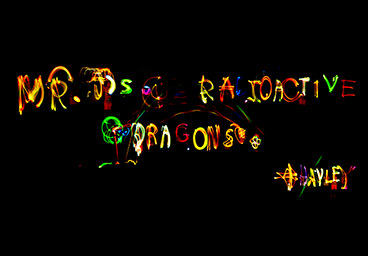 MR. T's RADIOACTIVE
DRAGONS
HAYLEY